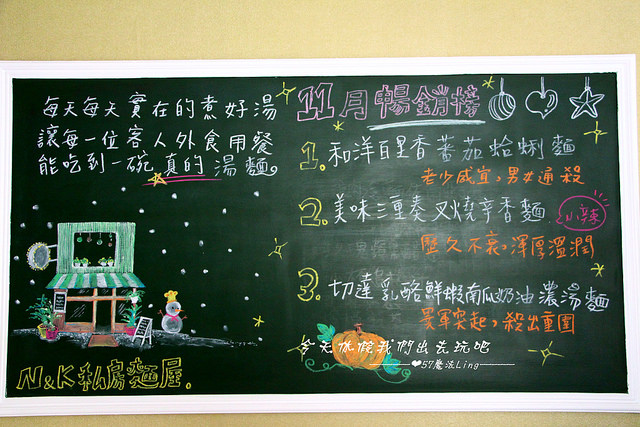 每天每天實在的煮好湯
讓每一位客人外食用餐
能吃到一碗真的湯麵。
N&K私房麵屋.
11月暢銷榜
1.和洋百里香蕃茄蛤蜊麵
老少咸宜,男女通殺
2.美味三重奏叉燒辛香麵 小辣
歷久不衰,渾厚溫潤
3.切達乳酪鮮蝦南瓜奶油濃湯麵
異軍突起,殺出重圍
今天休假我們出去玩吧
57魔法Ling